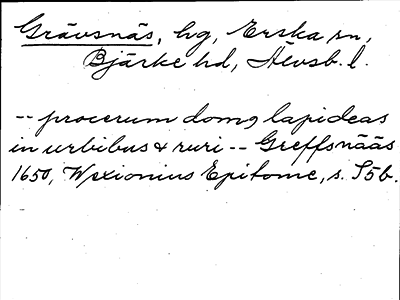 Grävsnäs, hg, Erska sn,
Bjärke hd, Älvsb. l.
-- procerum domꝯ lapideas
in urbibus & ruri -- Greffsnääs
1650, Wexionius Epitome, s. I5b.